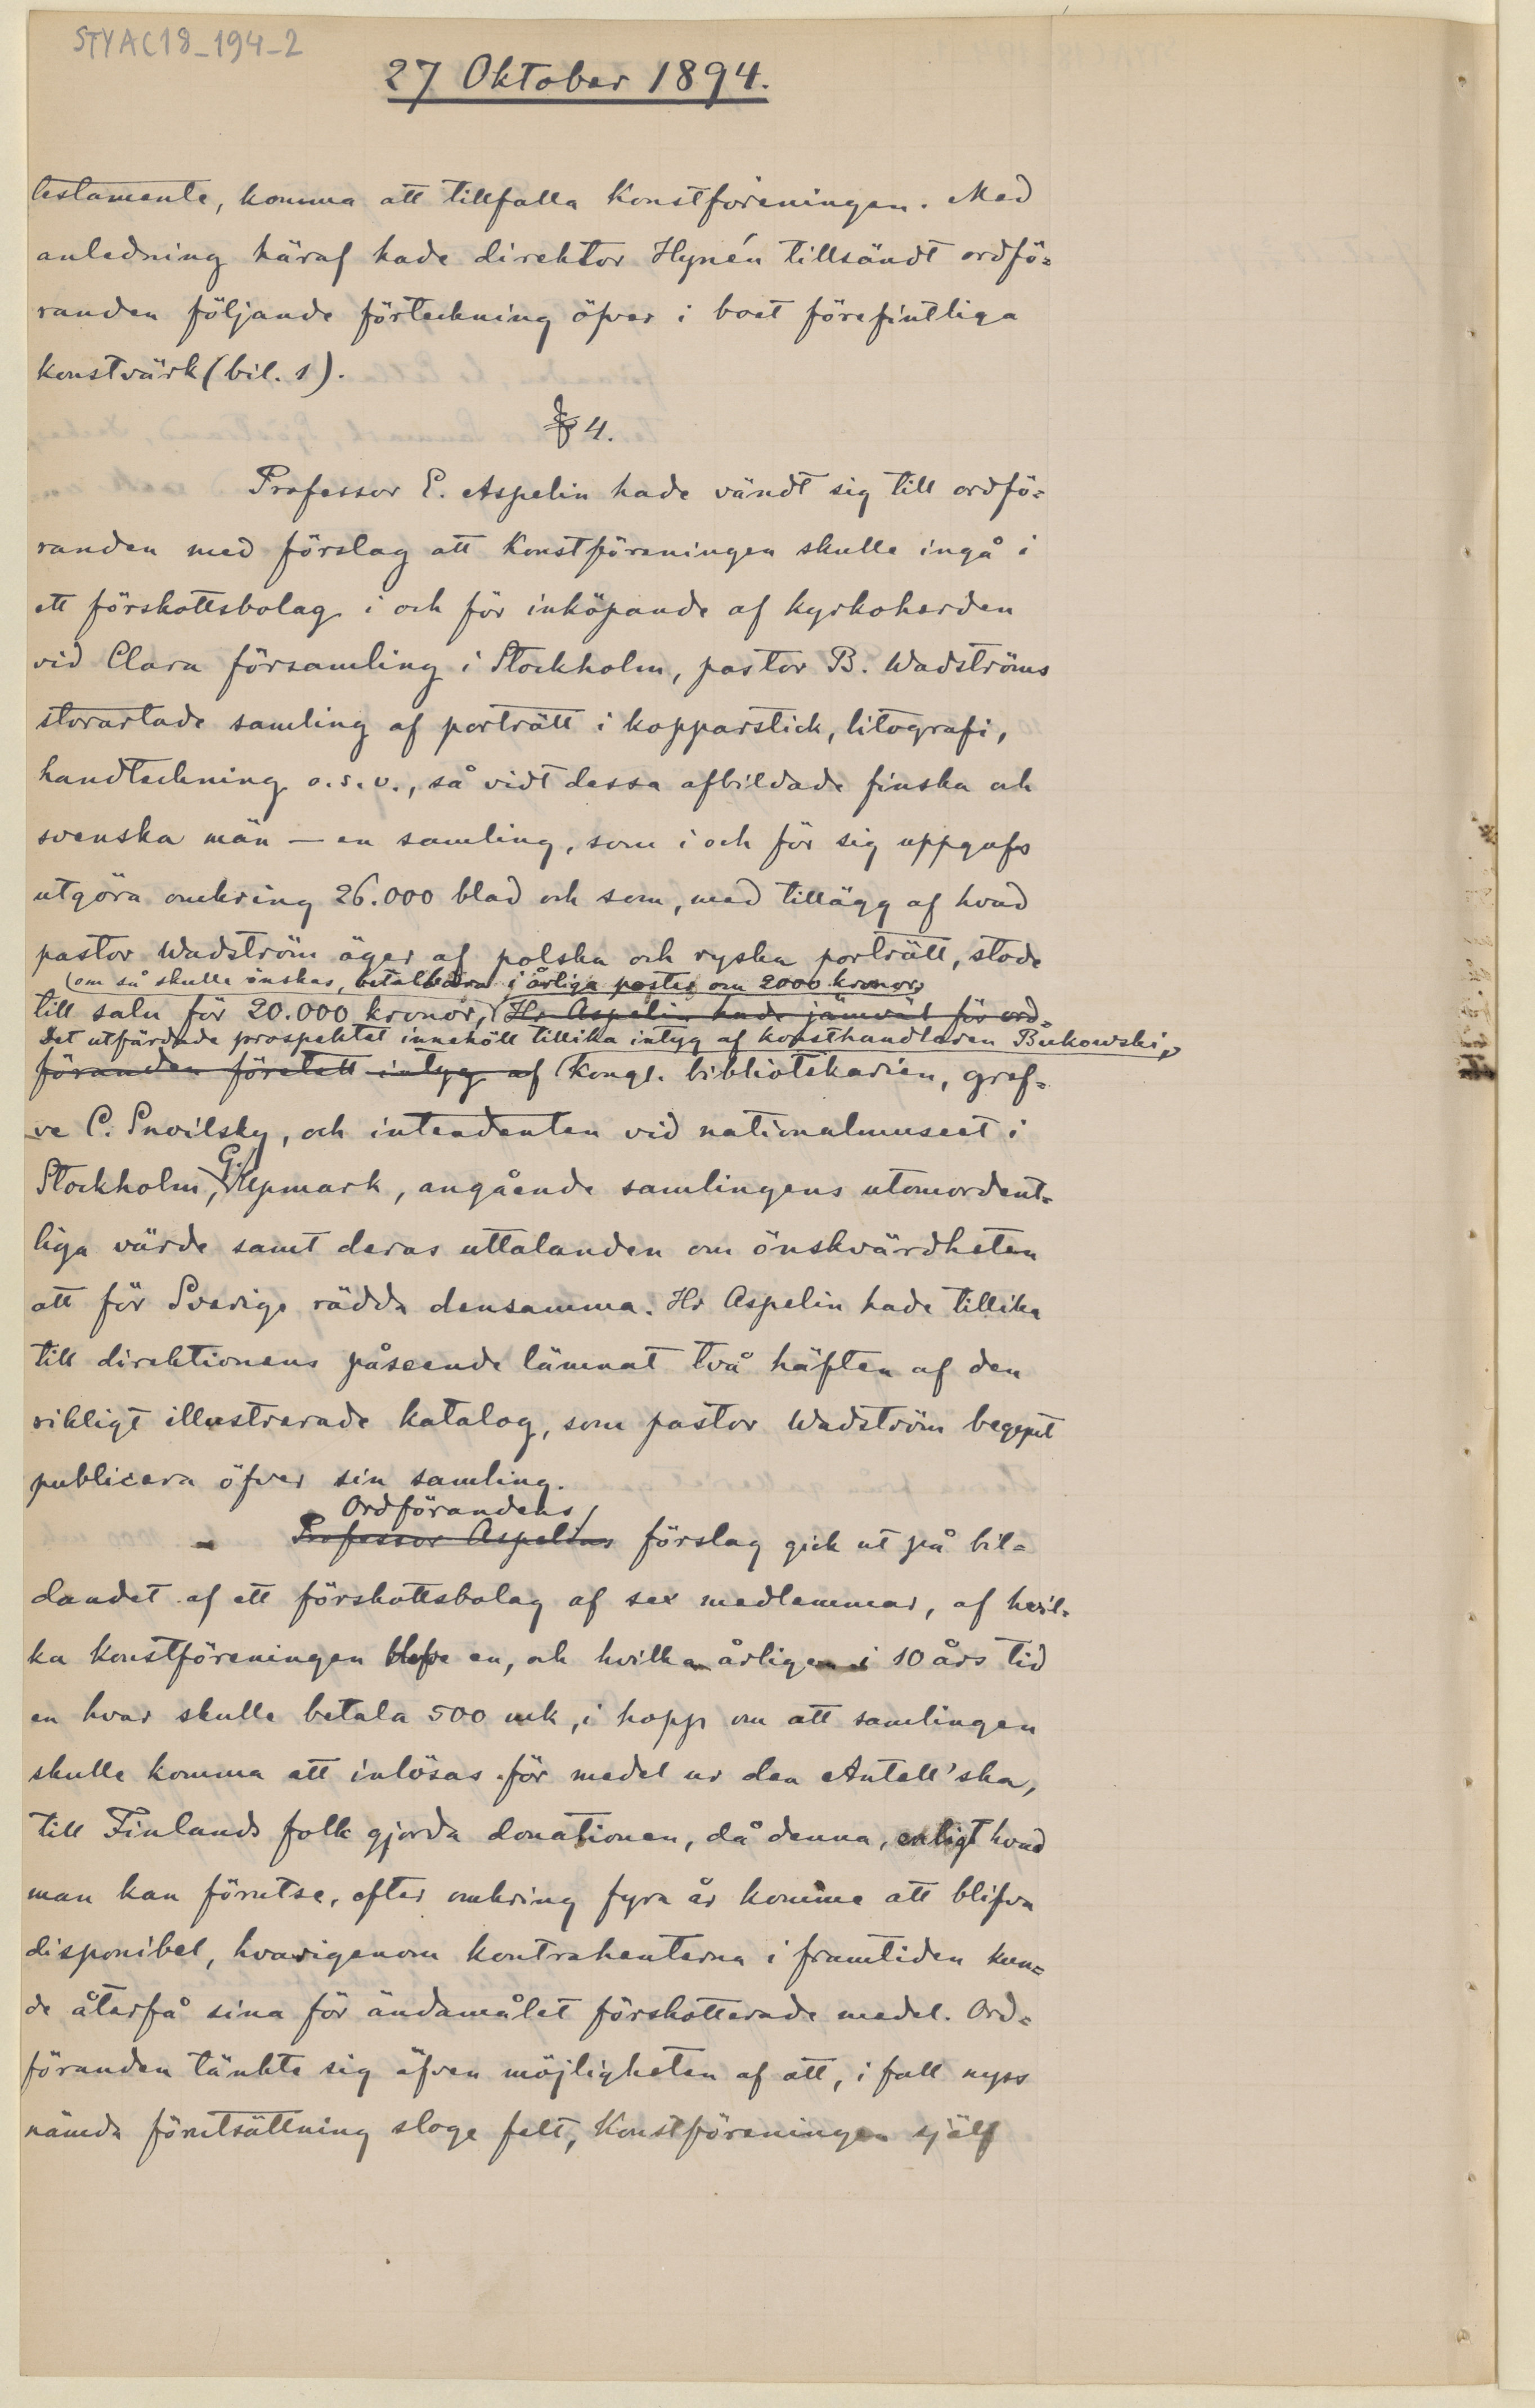 STYAC18_194-2
27 Oktober 1894.
testamente, komma att tillfalla Konstföreningen. Med
anledning häraf hade direktor Hynén tillsändt ordfö=
randen följande förteckning öfver i boet förefintliga
konstvärk (bil. 1).
§ 4.
Professor E. Aspelin hade vändt sig till ordfö=
randen med förslag att Konstföreningen skulle ingå i
ett förskottsbolag i och för inköpande af kyrkoherden
vid Clara församling i Stockholm, pastor B. Wadströms
storartade samling af porträtt i kopparstick, litografi,
handteckning o.s.v., så vidt dessa afbildade finska och
svenska män — en samling, som i och för sig uppgafs
utgöra omkring 26.000 blad och som, med tillägg af hvad
pastor Wadström äger af polska och ryska porträtt, stode
(om så skulle önskas, betalbara i årliga poster om 2000 kronor)
till salu för 20.000 kronor, Hr Aspelin hade jämväl för ord=
Det utfärdade prospektet innehöll tillika intyg af konsthandlaren Bukowski,
föranden företett intyg af Kongl. bibliotekarien, gref=
ve C. Snoilsky, och intendenten vid nationalmuseet i
Stockholm, G. Upmark, angående samlingens utomordent=
liga värde samt deras uttalanden om önskvärdheten
att för Sverige rädda densamma. Hr Aspelin hade tillika
till direktionens påseende lämnat två häften af den
rikligt illustrerade katalog, som pastor Wadström begynt
publicera öfver sin samling.
Ordförandens
Professor Aspelins förslag gick ut på bil=
dandet af ett förskottsbolag af sex medlemmar, af hvil=
ka Konstföreningen blefve en, och hvilka årligen i 10 års tid
en hvar skulle betala 500 mk, i hopp om att samlingen
skulle komma att inlösas för medel ur den Antell'ska,
till Finlands folk gjorda donationen, då denna, enligt hvad
man kan förutse, efter omkring fyra år komme att blifva
disponibel, hvarigenom kontrahenterna i framtiden kun=
de återfå sina för ändamålet förskotterade medel. Ord=
föranden tänkte sig äfven möjligheten af att, i fall nyss
nämda förutsättning sloge felt, Konstföreningen själf